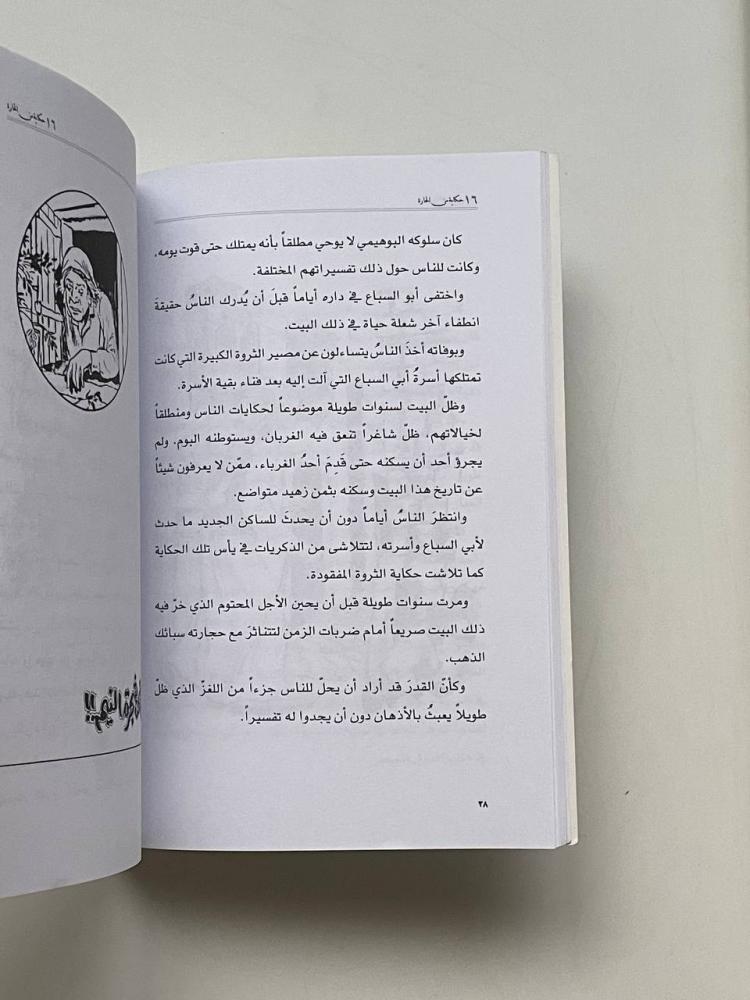 ١٦ حكاية من الحارة
كان سلوكه البوهيمي لا يوحي مطلقاً بأنه يمتلك حتى قوت يومه،
وكانت للناس حول ذلك تفسيراتهم المختلفة.
واختفى أبو السباع في داره أياماً قبلَ أن يُدرك الناسُ حقيقةَ
انطفاء آخر شعلة حياة في ذلك البيت.
وبوفاته أخذَ الناسُ يتساءلون عن مصير الثروة الكبيرة التي كانت
تمتلكها أسرةُ أبي السباع التي آلت إليه بعد فناء بقية الأسرة.
وظلّ البيت لسنوات طويلة موضوعاً لحكايات الناس ومنطلقاً
لخيالاتهم، ظلّ شاغراً تنعق فيه الغربان، ويستوطنه البوم، ولم
يجرؤ أحد أن يسكنه حتى قَدِمَ أحدُ الغرباء، ممّن لا يعرفون شيئاً
عن تاريخ هذا البيت وسكنه بثمن زهيد متواضع.
وانتظرَ الناسُ أياماً دون أن يحدثَ للساكن الجديد ما حدث
لأبي السباع وأسرته، لتتلاشى من الذكريات في يأس تلك الحكاية
كما تلاشت حكاية الثروة المفقودة.
ومرت سنوات طويلة قبل أن يحين الأجل المحتوم الذي خرّ فيه
ذلك البيت صريعاً أمام ضربات الزمن لتتناثرَ مع حجارته سبائك
الذهب.
وكأنّ القدرَ قد أراد أن يحلّ للناس جزءاً من اللغزّ الذي ظلّ
طويلاً يعبثُ بالأذهان دون أن يجدوا له تفسيراً.
٢٨
١٦ حكاية من الحارة